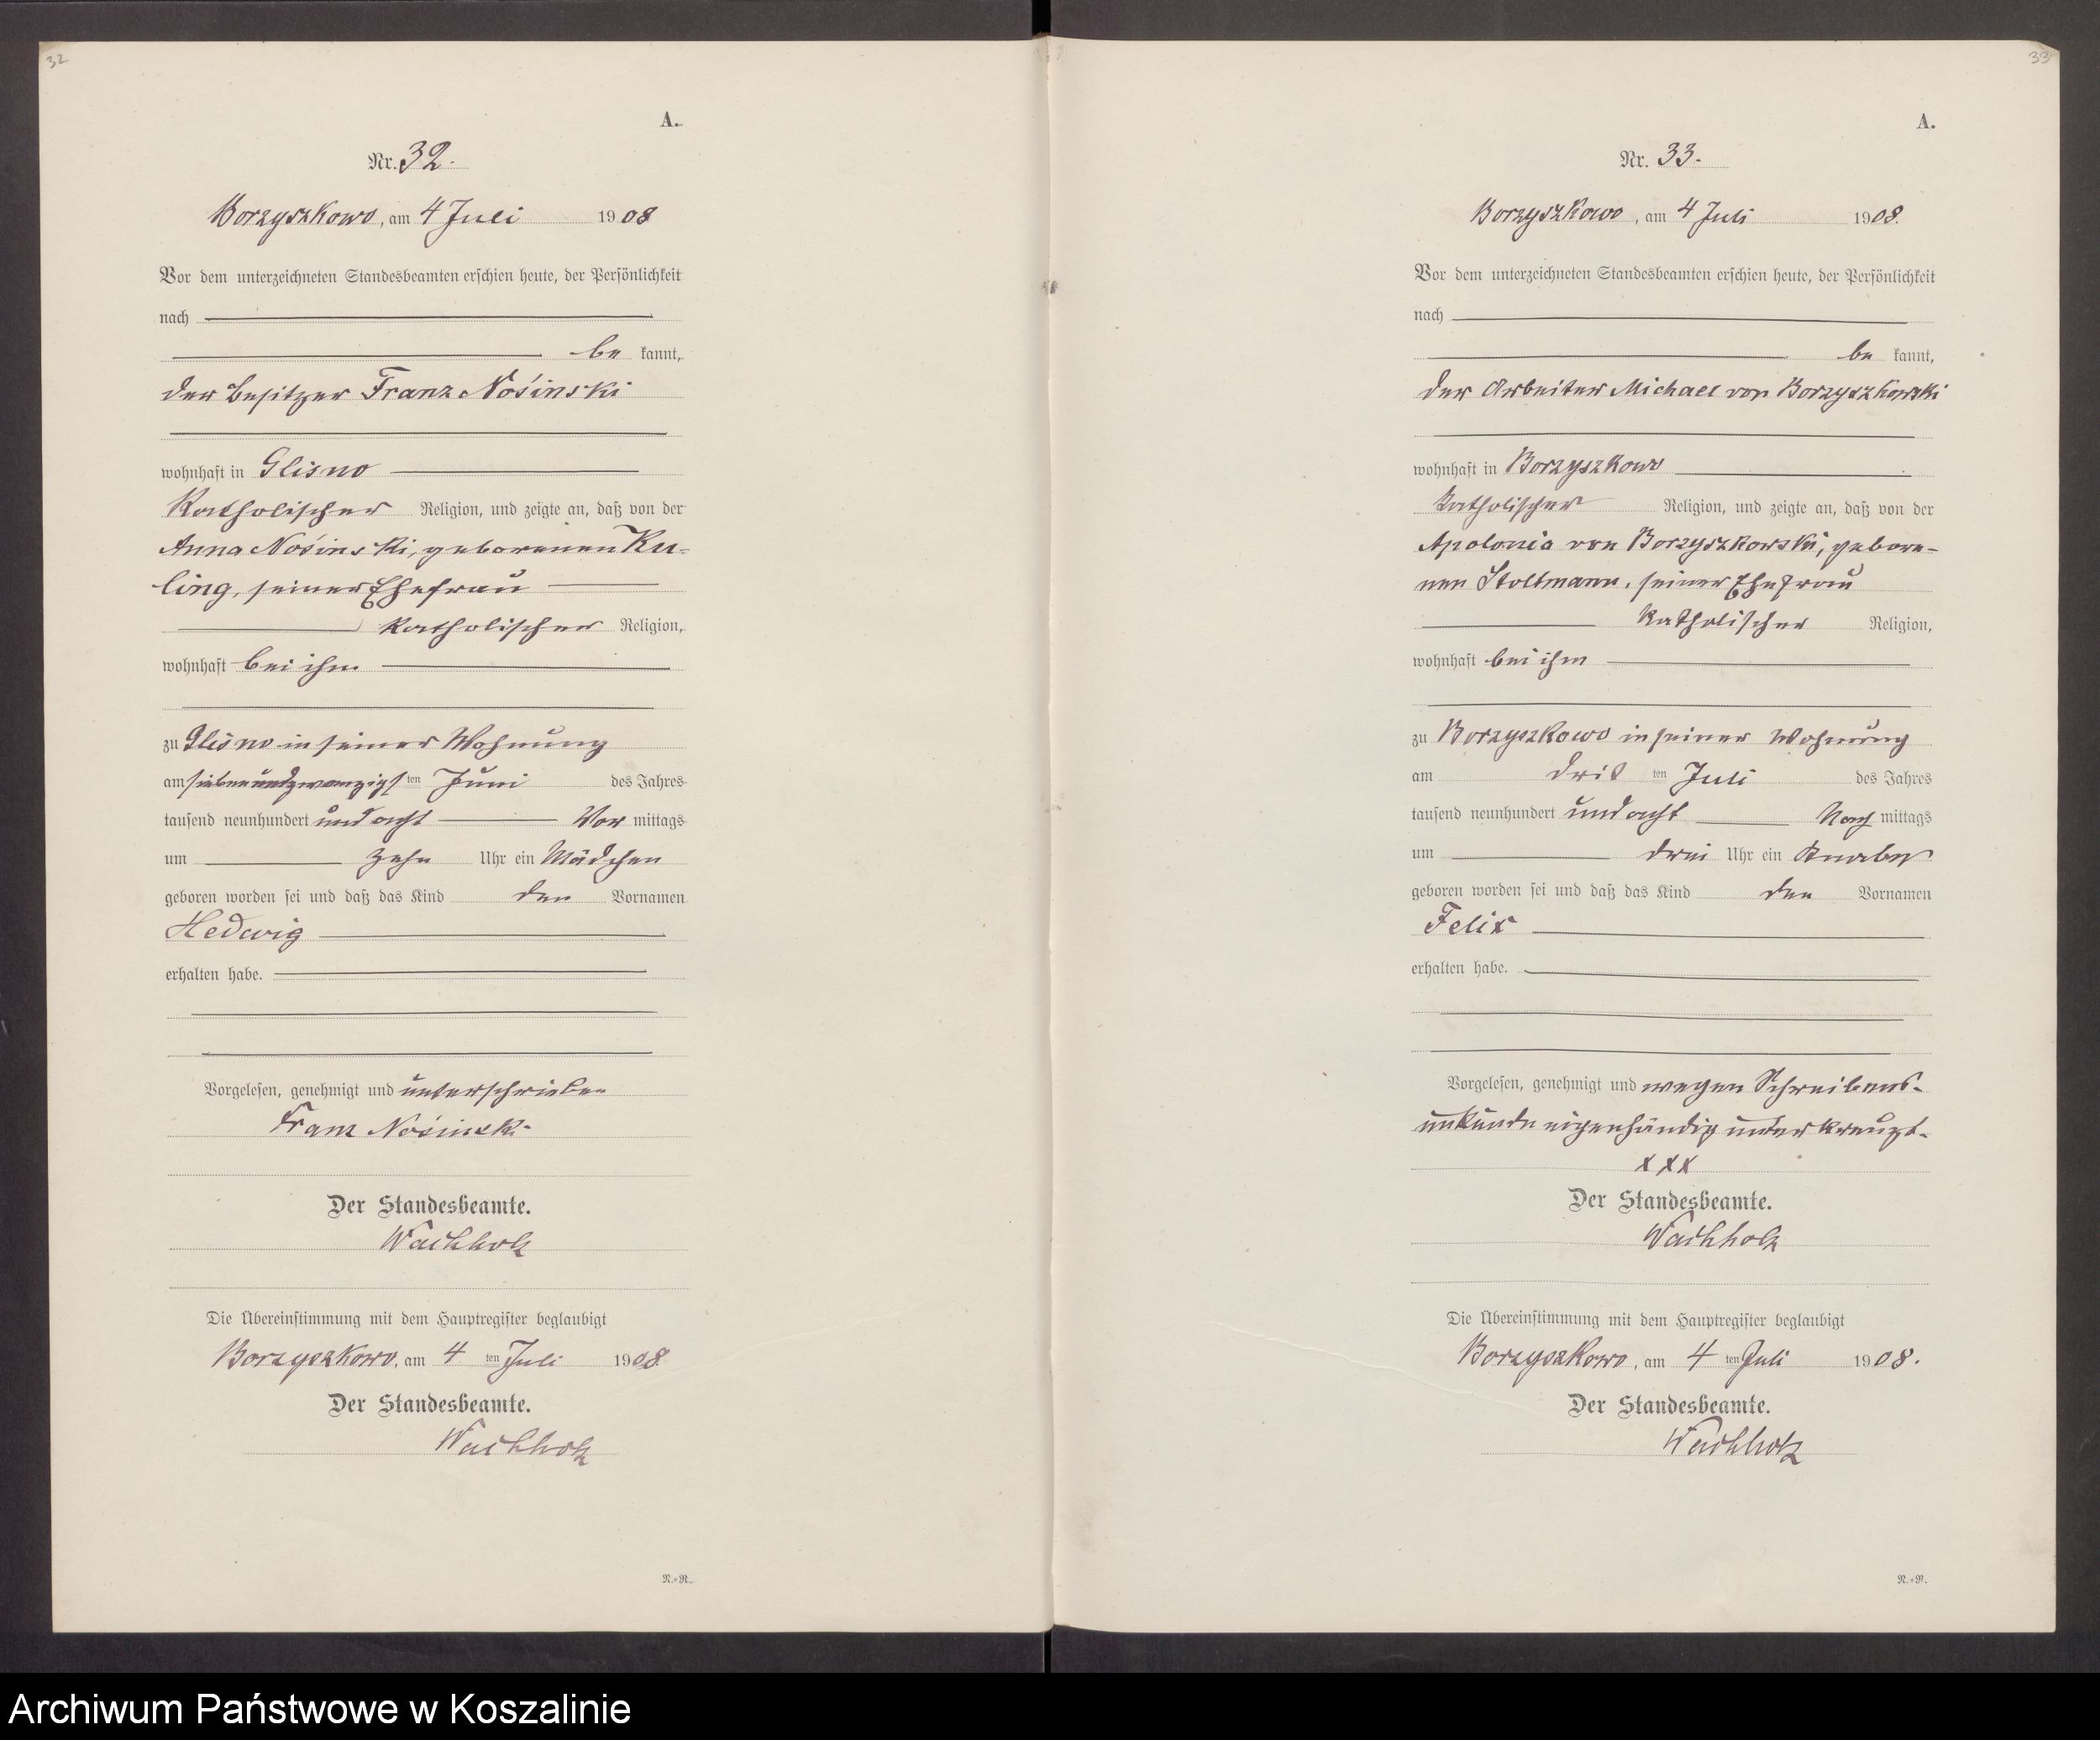 32
A.
Nr. 32.
Borzyszkowo, am 4 Juli 1908
Vor dem unterzeichneten Standesbeamten erschien heute, der Persönlichkeit
nach
be kannt,
der Besitzer Franz Nośinski
wohnhaft in Glisno
Katholischer Religion, und zeigte an, daß von der
Anna Nośinski, geborenen Ku-
ling, seiner Ehefrau
katholischer Religion,
wohnhaft bei ihm
zu Glisno in seiner Wohnung
am siebenundzwanzigsten Juni des Jahres
tausend neunhundert und acht Vor mittags
um zehn Uhr ein Mädchen
geboren worden sei und daß das Kind den Vornamen
Hedwig
erhalten habe.
Vorgelesen, genehmigt und unterschrieben
Franz Nośinski
Der Standesbeamte.
Wachholz
Die Übereinstimmung mit dem Hauptregister beglaubigt
Borzyszkowo, am 4 ten Juli 1908
Der Standesbeamte.
Wachholz
N.=N.
33
A.
Nr. 33.
Borzyszkowo, am 4 Juli 1908.
Vor dem unterzeichneten Standesbeamten erschien heute, der Persönlichkeit
nach
be kannt,
der Arbeiter Michael von Borzyszkowski
wohnhaft in Borzyszkowo
katholischer Religion, und zeigte an, daß von der
Apolonia von Borzyszkowski, gebore-
nen Stoltmann, seiner Ehefrau
katholischer Religion,
wohnhaft bei ihm
zu Borzyszkowo in seiner Wohnung
am drit ten Juli des Jahres
tausend neunhundert und acht Nach mittags
um drei Uhr ein Knabe
geboren worden sei und daß das Kind den Vornamen
Felix
erhalten habe.
Vorgelesen, genehmigt und wegen Schreibens-
unkunde eigenhändig unterkreuzt.
x x x
Der Standesbeamte.
Wachholz
Die Übereinstimmung mit dem Hauptregister beglaubigt
Borzyszkowo, am 4 ten Juli 1908.
Der Standesbeamte.
Wachholz
N.=N.
Archiwum Państwowe w Koszalinie